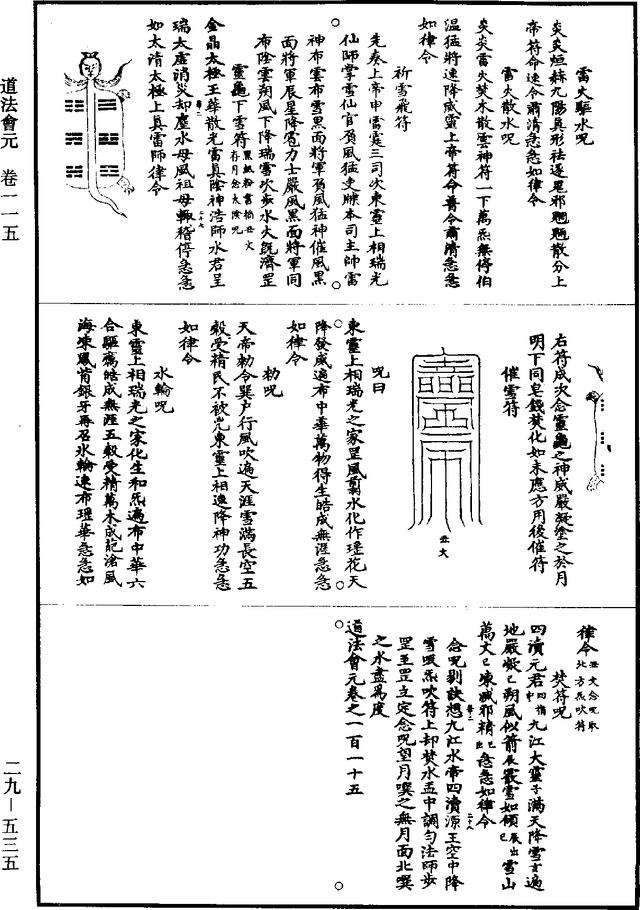 雷火驅水咒
炎炎烜赫九陽真形祛逐鬼邪魍魎散分上
帝符命速令肅清急急如律令
雷火散水咒
炎炎雷火焚木散雲神符一下萬炁無停伯
溫猛將速降威靈上帝符命普令肅清急急
如律令
祈雪飛符
先奏上帝申雷霆三司次東靈上相瑞光
仙師掌雪仙官頁風猛吏牒本司主帥雷
神布雲布雪黑面將軍頁風猛神催風黑
面將軍辰星降雹力士嚴風黑面將軍同
布陰雲朔風下降瑞雪吹步水火既濟罡
靈龜下雪符黑紙粉書搯丑文存月念太陰咒
金晶太極玉華散光雷真陰神浩師水君呈
瑞太虛消災却塵水母風祖母輒稽停急急
如太清太極上真雷師律令
右符成次念靈龜之神威嚴凝塗之於月
明下同皂錢焚化如未應方用後催符
催雪符
丑文
咒曰
東靈上相瑞光之家罡風翦水化作瑳花天
降發成遍布中華萬物得生皓成無涯急急
如律令
勑咒
天帝勑令巽戶行風吹遍天涯雪滿長空五
穀受精民不被咒東靈上相速降神功急急
如律令
水輪咒
東靈上相瑞光之家化生和炁遍布中華六
合驅癘皓成無涯五穀受精萬木成葩滄風
海凍鳳骨銀牙再召氷輪速布瑳華急急如
律令丑文念咒取北方炁吹符
焚符咒
四瀆元君四指中九江大靈子滿天降雪玄遍
地嚴凝已朔風似箭辰囊雪如傾已辰出雪山
萬丈已凍滅邪精已出急急如律令
念咒剔訣想九江水帝四瀆源王空中降
雪吸炁吹符上却焚水盂中調勻法師步
罡至罡立定念咒望月噀之無月面北噀
之水盡為度
道法會元卷之一百一十五
道法會元 卷一一五
二九－五三五